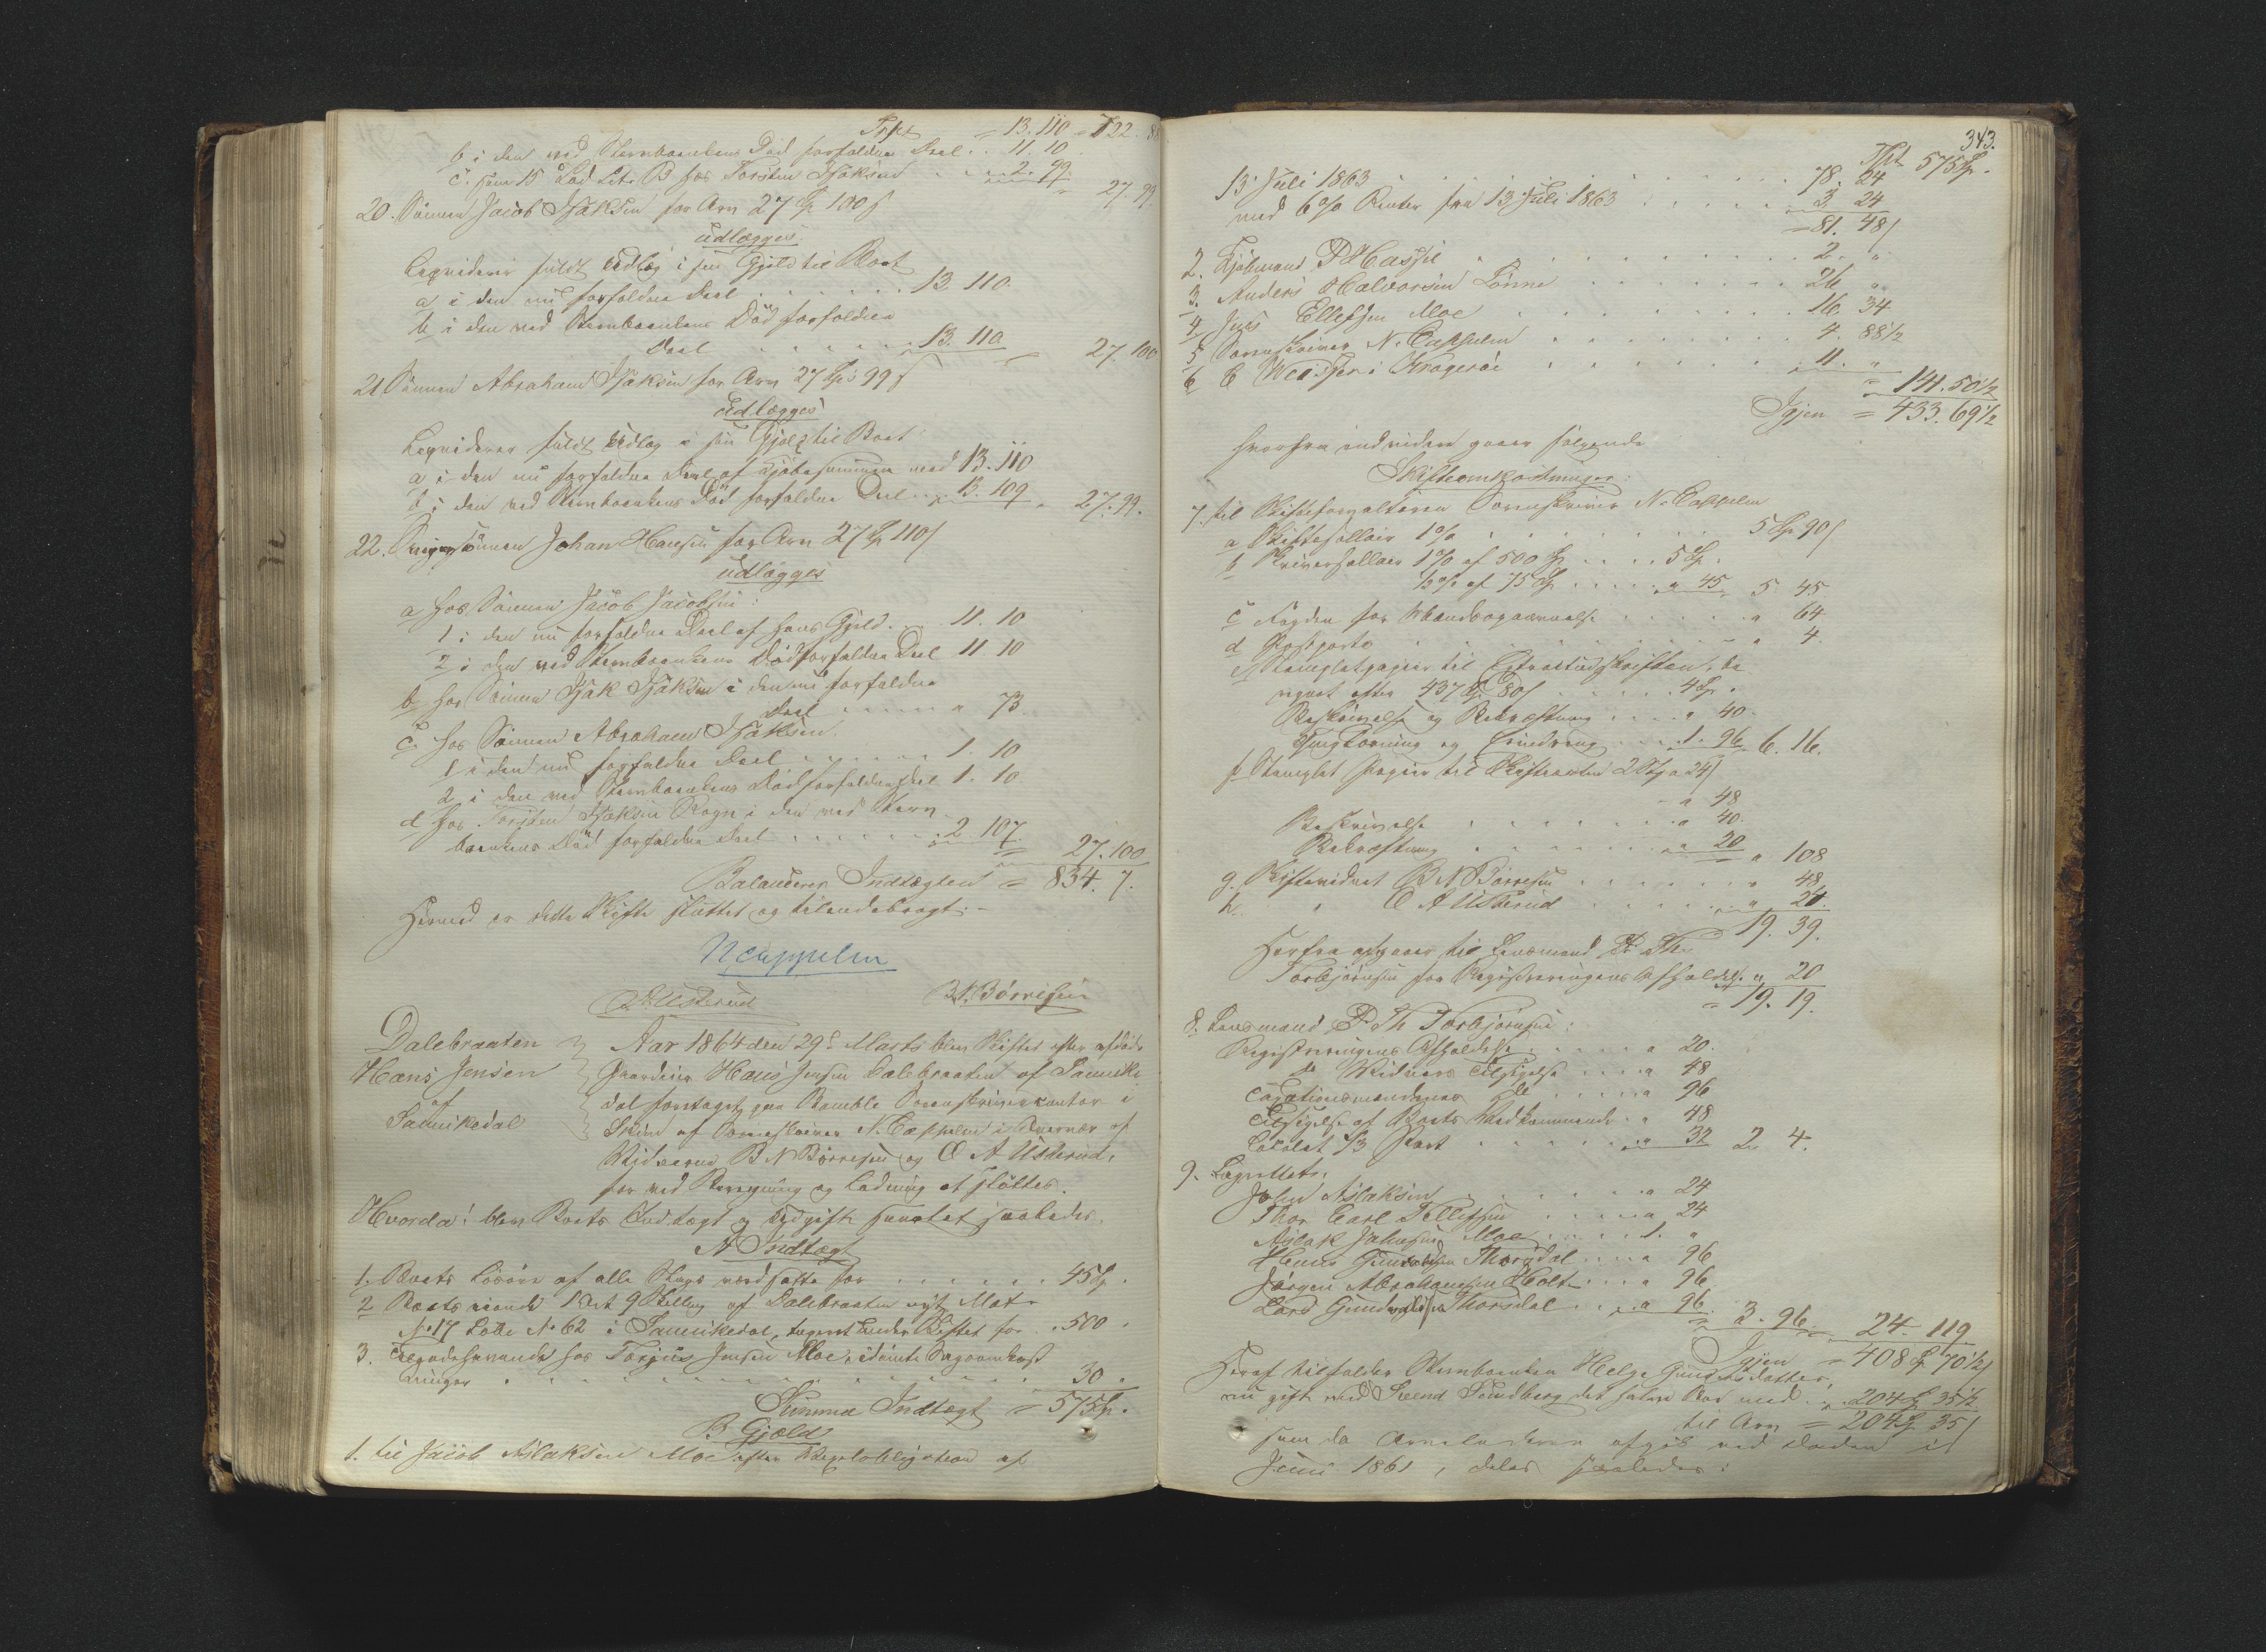 Tspt = 13. 110 = 722. 8
b i den ved Sterbboenkens Död forfaldne Deel . . 11. 10
c. sum 15 Lod Litr B hos Torsten Isaksen . . . 2. 99.
= 27. 99.
20. Sönnen Jacob Isaksen for Arv 27 Sp 100 s
udlægges:
Liqviderer fuldt Udlæg i sin Gjeld til Boet
a i den nu forfaldne Deel . . . . . . 13. 110.
b i den ved Sterbboenkens Död forfaldne
Deel . . . . . 13. 110
= 27. 100
21 Sönnen Abraham Isaksen for Arv 27 Sp 99 s
Udlægges
Liqviderer fuldt Udlæg i sin Gjæld til Boet
a i den nu forfaldne Deel af Kjöbesummen med 13. 110
b i den ved Sterbboenkens Död forfaldne Deel . . . 13. 109
" 27. 99.
22. Svigersönnen Johan Hansen for Arv 27 Sp 110 s
udlægges
a hos Sönnen Jacob Jacobsen:
1 i den nu forfaldne Deel af hans Gjeld . . . 11. 10
2 i den ved Sterbboenkens Död forfaldne Deel 11. 10
b hos Sönnen Isak Isaksen i den nu forfaldne
Deel . . . . . " 73
c. hos Sönnen Abraham Isaksen.
1 i den nu forfaldne Deel . . . . . . 1. 10
2 i den ved Sterbboenkens Död forfaldne Deel 1. 10
d hos Torsten Isaksen Rogn i den ved Sterb-
boenkens Död forfaldne Deel . . . . . . . 2. 107.
= 27. 100
Balancerer Indtægten = 834. 7.
Hermed er dette Skifte sluttet og tilendebragt. –
NCappelen
OAUsterud
B.N.Börresen
Dalebraaten
Hans Jensen
af
Sannikedal
Aar 1864 den 29d Marts blev Skiftet efter afdöde
Gaardeier Hans Jensen Dalebraaten af Sannike-
dal foretaget paa Bamble Sorenskrivercontor i
Skien af Sorenskriver N. Cappelen i Overvær af
Vidnerne B N Börresen og O A Usterud,
for ved Beregning og Lodning at sluttes.
Hvorda: blev Boets Indtægt og Udgift samlet saaledes.
A Indtægt
1. Boets Lösöre af alle Slags værdsatte for . . . . . . 45 Sp.
2 Boets eiende 1 Ort 9 Skilling af Dalebraaten nyt Mat-
No 17 Löbe No 62 i Sannikedal, taxeret under Skiftet for . . 500 "
3. Tilgodehavende hos Torjus Jensen Moe, idömte Sagsomkost-
ninger . . . . . . . . . . . . . . . 30 "
Summa Indtægt = 575 Sp.
B Gjæld
1. til Jacob Aslaksen Moe efter Vexelobligation af
343.
Tspt 575 Sp.
13 Juli 1863 . . . . . . . . . . . . 78. 24
med 6% Renter fra 13 Juli 1863 . . . . . . 3. 24
= 81. 48 s
2. Kjöbmand P Hassel . . . . . . . . . . 2. "
3. Anders Halvorsen Lönne . . . . . . . . 26 "
4 Jens Ellefsen Moe . . . . . . . . 16. 34
5 Sorenskriver N. Cappelen . . . . . . . 4. 88½
6 C Weisser i Kragerøe . . . . . . . 11. "
= 141. 50½
Igjen = 433. 69½
hvorfra endvidere gaaer fölgende
Skifteomkostninger:
7. til Skifteforvalteren Sorenskriver N. Cappelen
a Skiftesallair 1% . . . . . . . . 5 Sp 90 s
b Skriversallair 1% af 500 Sp . . . . 5 Sp.
½% af 75 Sp . . . . " 45 5 45
c Fogden for Skændsopnævnelse . . . . . . " 64
d Postporto . . . . . . . . . . . " 4
e Stemplet papiir til Extractudskriften, be-
regnet efter 437 Sp 80 s . . . . . . 4 Sp.
Beskrivelse og Bekræftning . . . . " 40
Tinglæsning og Erindring . . . . 1. 96 6. 16.
f. Stemplet Papiir til Skifteacten 2 Stk a 24 s
" 48
Beskrivelse . . . . . . . . " 40.
Bekræftning . . . . . . . " 20
" 108
g. Skiftevidnet B N Börresen . . . . . . . " 48
h. " O A Usterud . . . . . . . " 24.
19. 39.
Herfra afgaaer til Lensmand P. Th.
Torbjörnsen for Registreringens Afholdelse " 20
= 19. 19.
8. Lensmand P. Th Torbjörnsen:
Registreringens Afholdelse . . . . . " 20.
2 Vidners Tilsigelse . . . . " 48
Taxationsmændenes Do . . . . . " 96
Tilsigelse af Boets Vedkommende " 48
Localet 1/3 Part . . . . . . . . " 32 2 4.
9. Lagrettet:
John Aslaksen . . . . . . . " 24
Thor Carl Tellefsen . . . . . " 24
Aslak Johnsen Moe . . . . . 1. "
Hans Gundersen Thorsdal . . . . " 96
Jörgen Abrahamsen Holte . . . " 96
Lars Gundersen Thorsdal . . . . " 96
= 3. 96 = 24. 119
Igjen = 408 Sp 70½ s
Heraf tilfalder Sterbboenken Helge Gunnersdatter,
nu gift med Svend Sundberg det halve Boe med . . 204 Sp 35½
til Arv = 204 Sp 35 s
som da Arveladeren afgik ved Döden i
Juni 1861, deles saaledes: